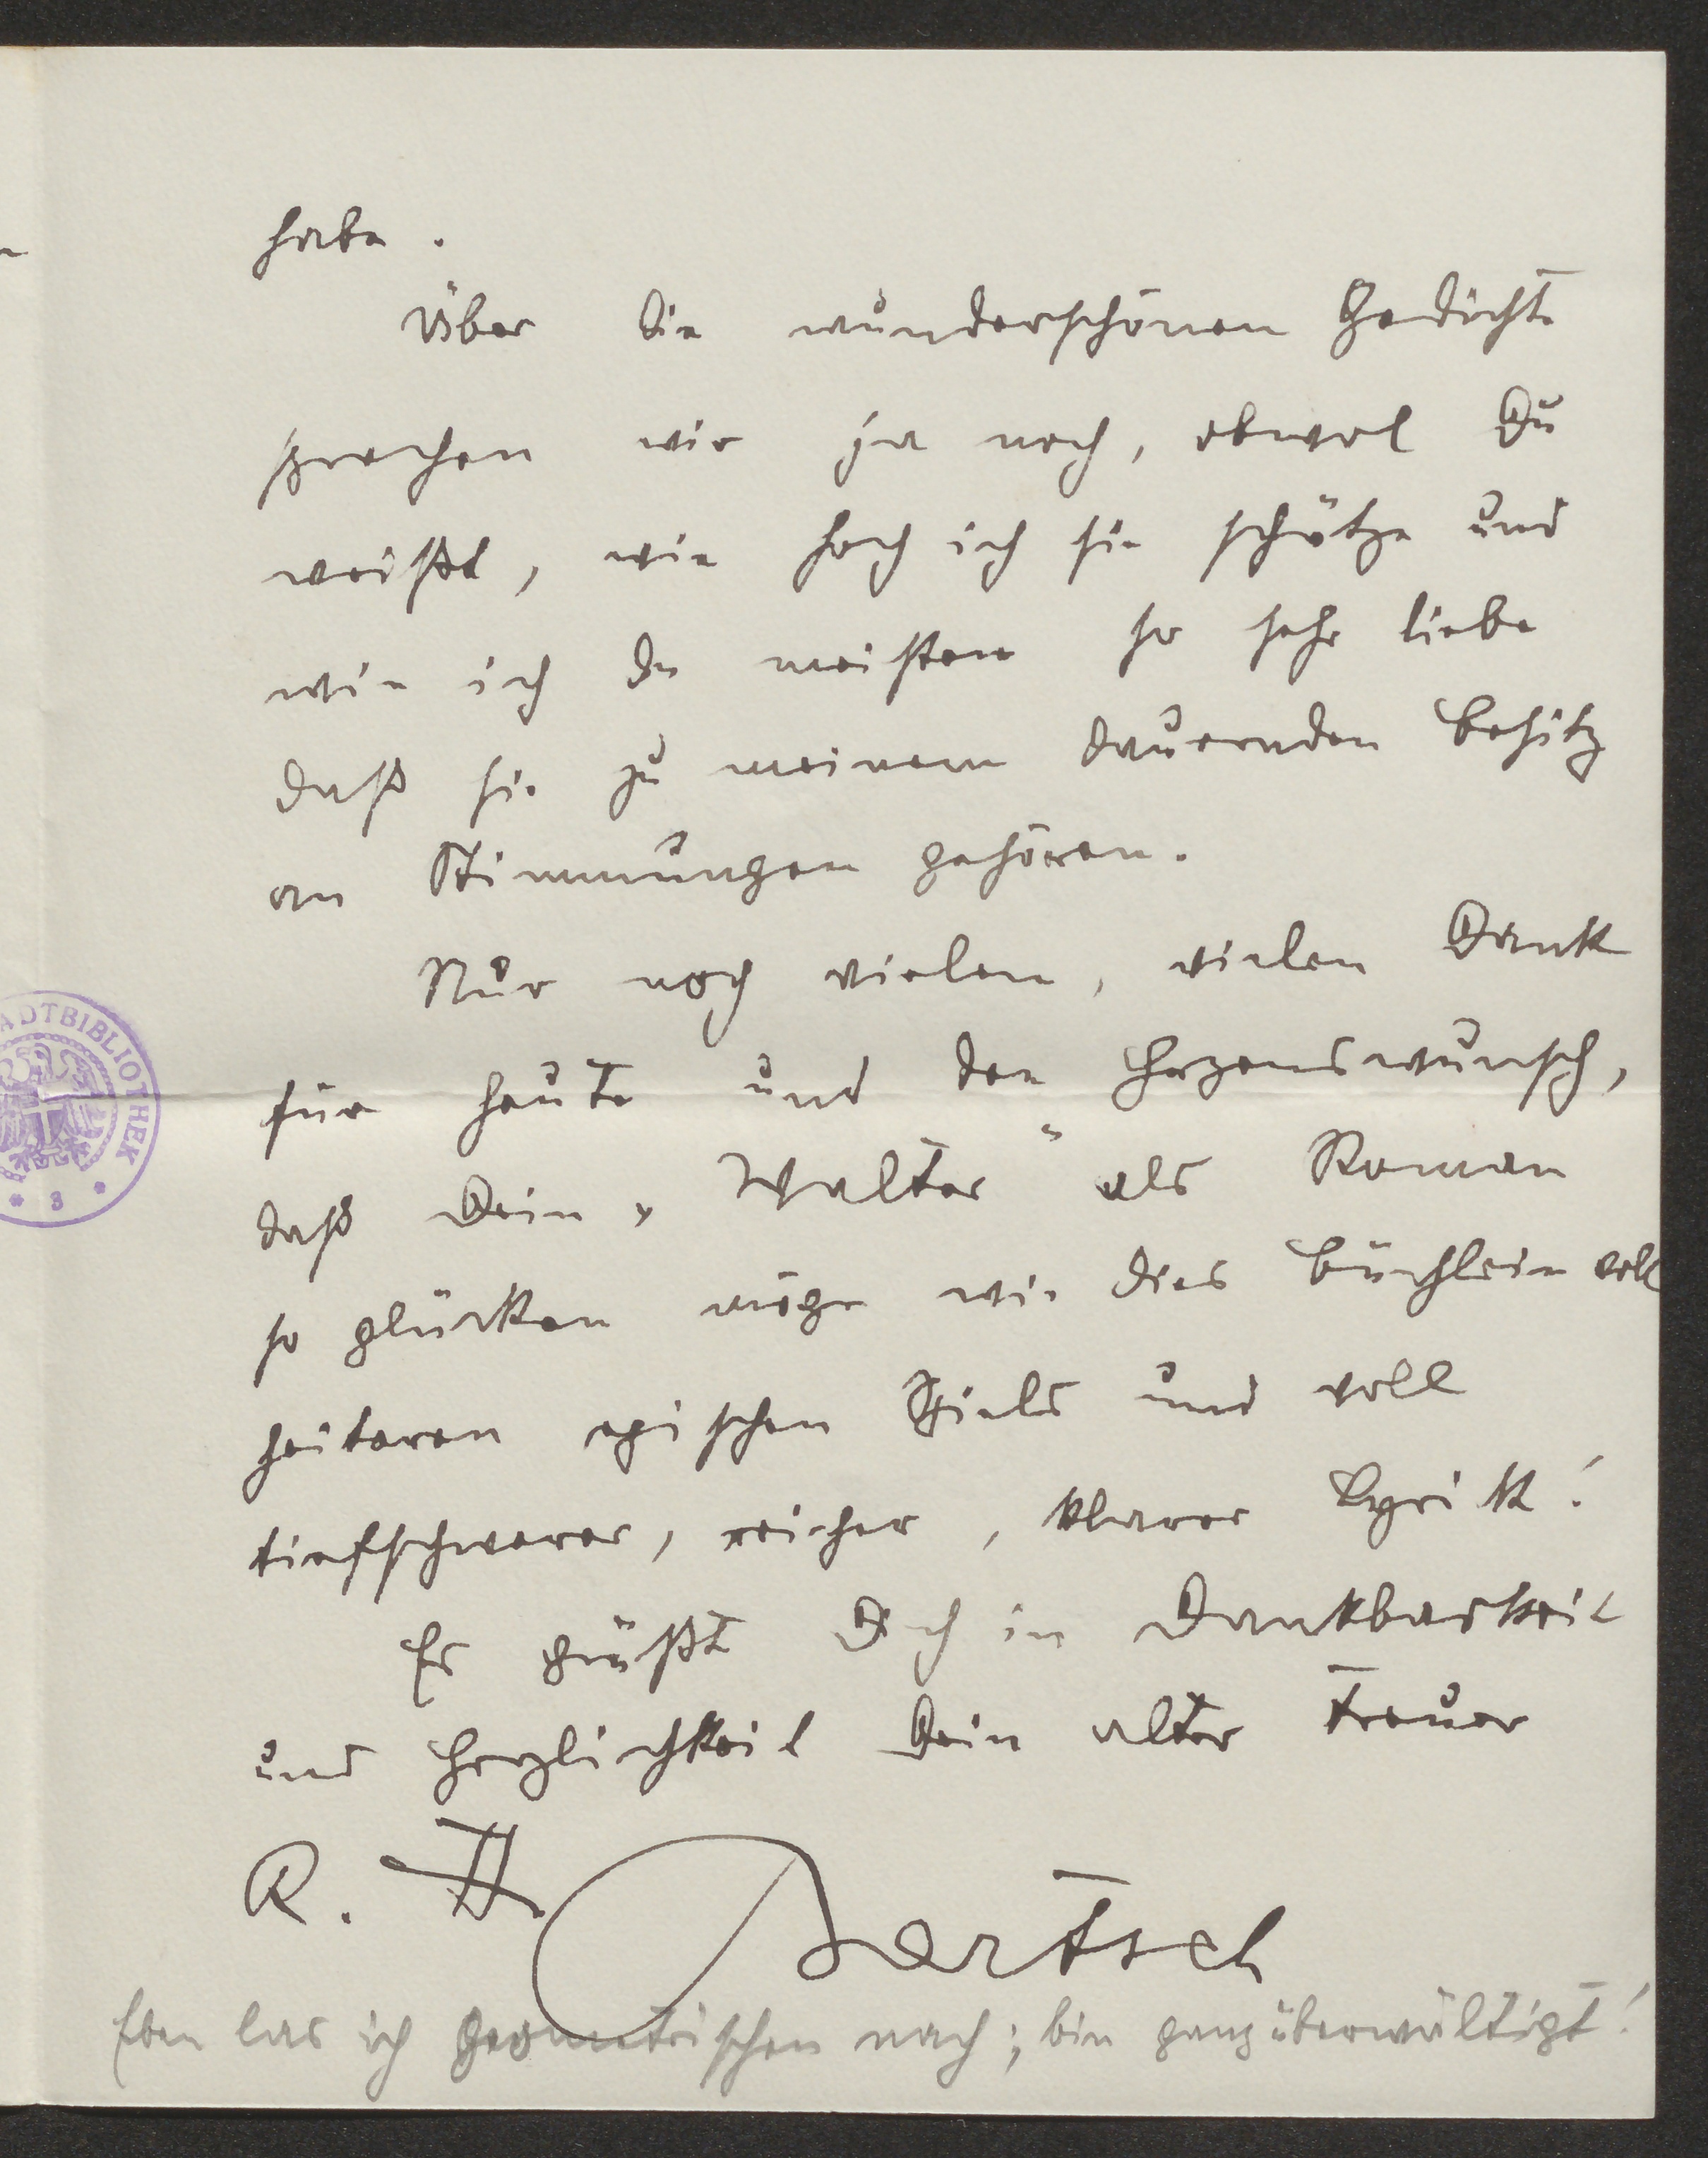 habe.
Über die wunderschönen Gedichte
sprechen wir ja noch, obwol Du
weißt, wie hoch ich sie schätze und
wie ich die meisten so sehr liebe
daß sie zu meinem dauernden Besitz
an Stimmungen gehören.
Nur noch vielen, vielen Dank
für heute und den Herzenswunsch,
daß Dein „Walter“ als Roman
so glücken möge wie dies Büchlein voll
heiteren epischen Spiels und voll
tiefschwerer, reicher, klarer Lyrik!
Es grüßt Dich in Dankbarkeit
und Herzlichkeit Dein alter treuer
R. H. Bartsch
Eben las ich nach; bin ganz überwältigt!
ADTBIBLIOTHEK
* 3 *